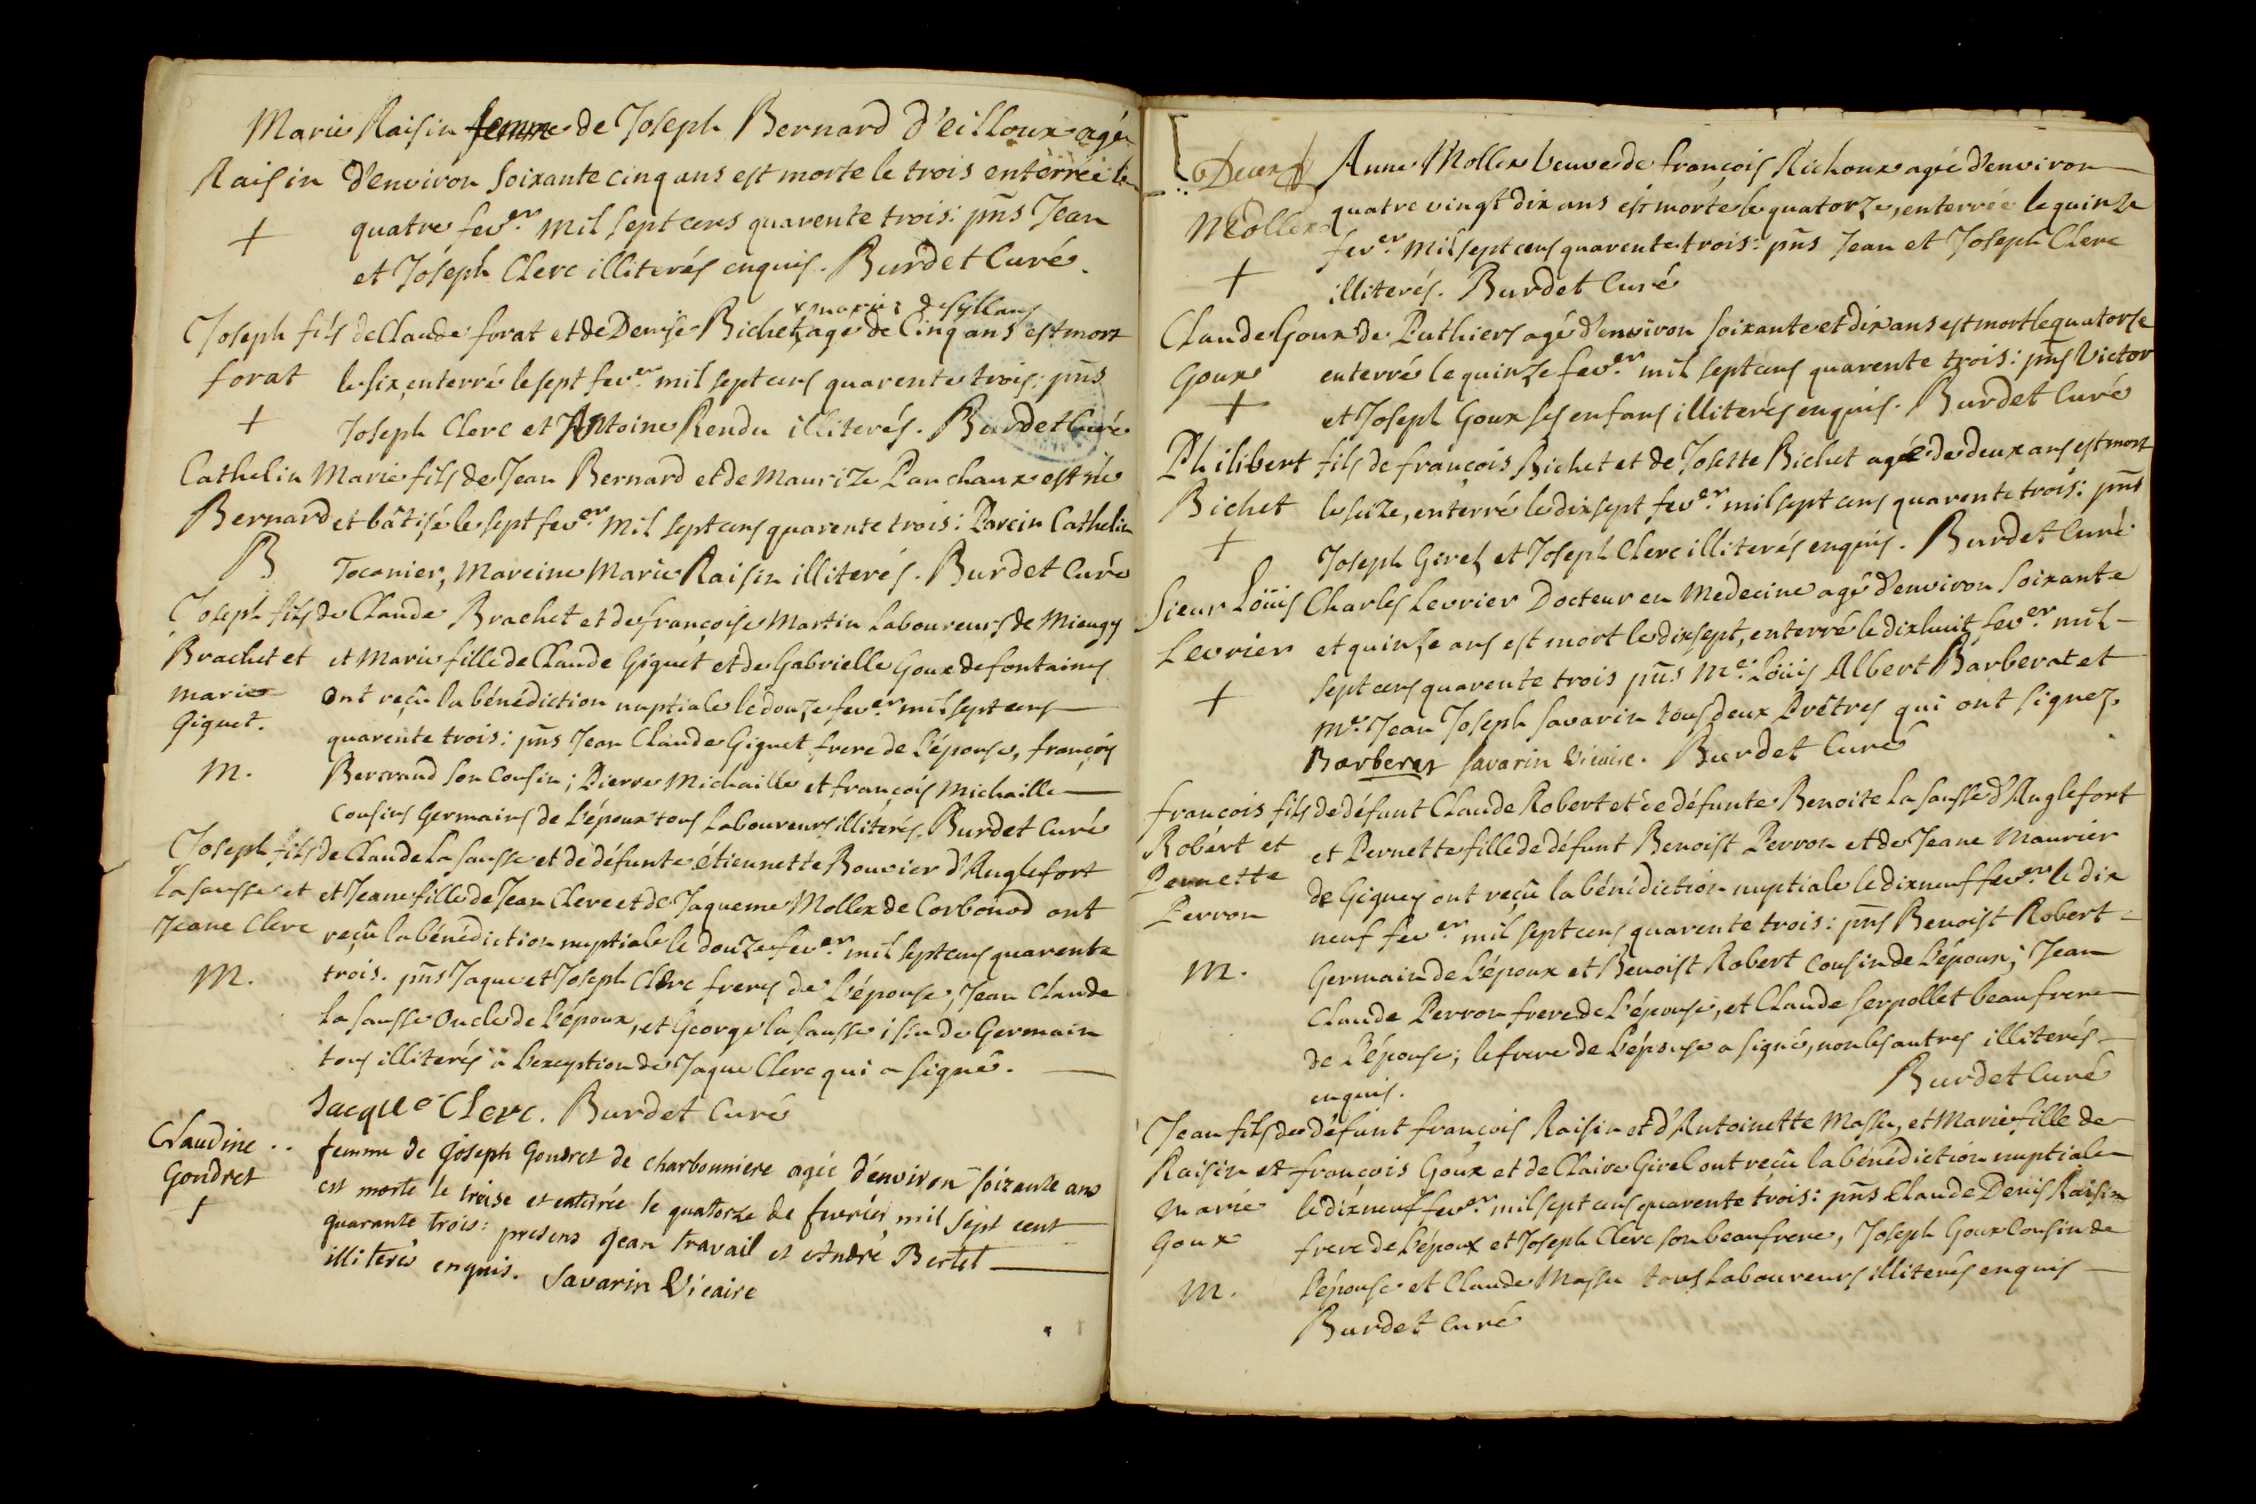 Marie Raisin femme de Joseph Bernard d'eilloux agée
Raisin d'environ soixante cinq ans est morte le trois enterrée le
+ quatre fev.er mil sept cens quarente trois: pns Jean
et Joseph Clerc illiterés enquis. Burdet Curé.
mariez de Syllans
Joseph fils de Claude forat et de Denise Bichet, agé de Cinq ans est mort
forat le six, enterré le sept fev.er mil sept cens quarente trois: pns
+ Joseph Clerc et Antoine Rendu illiterés. Burdet Curé
Cathelin Marie fils de Jean Bernard et de Maurize Panchaux est né
Bernard et bâtisé le sept fev.er mil sept cens quarente trois: Parein Cathelin
B Toconier, Mareine Marie Raisin illiterés. Burdet Curé
Joseph fils de Claude Brachet et de françoise Martin Laboureurs de Mieugy
Brachet et et Marie fille de Claude Giguet et de Gabrielle Goux de fontaines
marie ont reçû la bénédiction nuptiale le douze fev.er mil sept cens
Giguet. quarente trois: pns Jean Claude Giguet frere de L'épouse, françois
M. Bertrand son Cousin; Pierre Michaille et françois Michaille
Cousins Germains de L'époux tous Laboureurs illiterés. Burdet Curé
Joseph fils de Claude La Sausse et de défunte étiennette Bouvier d'Anglefort
La Sausse et et Jeane fille de Jean Clerc et de Jaqueme Mollex de Corbonod ont
Jeane Clerc reçû la bénédiction nuptiale le douze fev.er mil sept cens quarente
M. trois. pns Jaque et Joseph Clerc freres de L'épouse, Jean Claude
La Sausse Oncle de L'époux, et George la Sausse issu de Germain
tous illiterés à L'exception de Jaque Clerc qui a signé.
Jacque Clerc. Burdet Curé
Claudine .. femme de Joseph Gondret de charbonniere agée d'environ soixante ans
Gondret est morte le treise et enterrée le quatorze de fevrier mil sept cent
+ quarante trois: presens Jean travail et André Bertet
illiterés enquis. Savarin Vicaire
6 Deces Anne Mollex veuve de françois Richoux agée d'environ
Mollex quatre vingt dix ans est morte le quatorze, enterrée le quinze
+ fev.er mil sept cens quarente trois: pns Jean et Joseph Clerc
illiterés. Burdet Curé
Claude Goux de Puthiers agé d'environ soixante et dix ans est mort le quatorse
Goux enterré le quinze fev.er mil sept cens quarente trois: pns Victor
+ et Joseph Goux ses enfans illiterés enquis. Burdet Curé
Philibert fils de françois Bichet et de Josette Bichet agé de deux ans est mort
Bichet le seize, enterré le dix sept fev.er mil sept cens quarente trois: pns
+ Joseph Girel et Joseph Clerc illiterés enquis. Burdet Curé
Sieur Loüis Charles Levrier Docteur en Medecine agé d'environ soixante
Levrier et quinze ans est mort le dix sept, enterré le dix huit fev.er mil
+ sept cens quarente trois pns Me. Loüis Albert Barberat et
Me. Jean Joseph Savarin tous deux Prêtres qui ont signez.
Barberat Savarin Vicaire. Burdet Curé
françois fils de défunt Claude Robert et de défunte Benoite La Sausse d'Anglefort
Robert et et Pernette fille de défunt Benoist Perron et de Jeane Maurier
Pernette de Gignez ont reçû la bénédiction nuptiale le dix neuf fev.er le dix
Perron neuf fev.er mil sept cens quarente trois: pns Benoist Robert
M. Germain de L'époux et Benoist Robert Cousin de L'époux; Jean
Claude Perron frere de L'épouse, et Claude Serpollet beau frere
de L'épouse; le frere de L'épouse a signé, non les autres illiterés
enquis. Burdet Curé
Jean fils de défunt françois Raisin et d'Antoinette Masse, et Marie fille de
Raisin et françois Goux et de Claire Girel ont reçû la bénédiction nuptiale
Marie le dix neuf fev.er mil sept cens quarente trois: pns Claude Denis Raisin
Goux frere de L'époux et Joseph Clerc son beau frere, Joseph Goux Cousin de
M. L'épouse et Claude Masse tous Laboureurs illiterés enquis
Burdet Curé